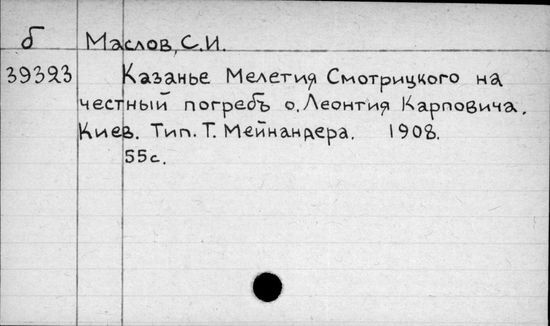 б Маслов, С.И.
39393 Казанье Мелетия Смотрицкого на
честный погребъ о. Леонтия Карповича.
Киев. Тип. Т. Мейнандера. 1908.
55с.